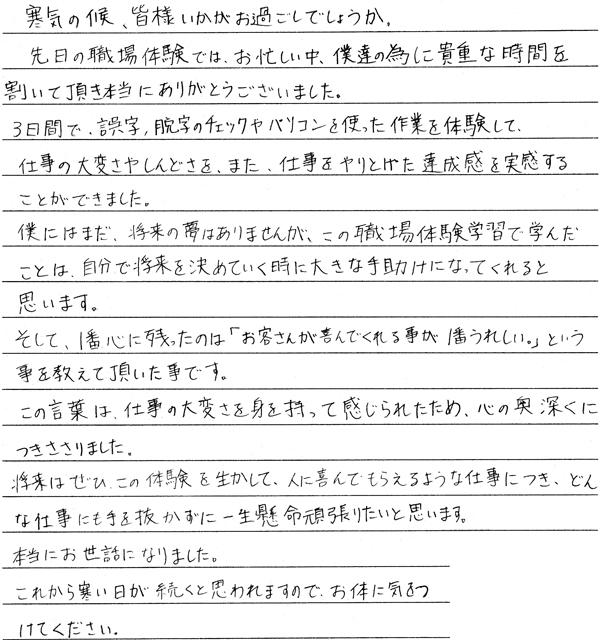 寒気の候、皆様いかがお過ごしでしょうか。
先日の職場体験では、お忙しい中、僕達の為に貴重な時間を
割いて頂き本当にありがとうございました。
3日間で、誤字,脱字のチェックやパソコンを使った作業を体験して、
仕事の大変さやしんどさを、また、仕事をやりとげた達成感を実感する
ことができました。
僕にはまだ、将来の夢はありませんが、この職場体験学習で学んだ
ことは、自分で将来を決めていく時に大きな手助けになってくれると
思います。
そして、1番心に残ったのは「お客さんが喜んでくれる事が1番うれしい。」という
事を教えて頂いた事です。
この言葉は、仕事の大変さを身を持って感じられたため、心の奥深くに
つきささりました。
将来はぜひ、この体験を生かして、人に喜んでもらえるような仕事につき、どん
な仕事にも手を抜かずに一生懸命頑張りたいと思います。
本当にお世話になりました。
これから寒い日が続くと思われますので、お体に気をつ
けてください。